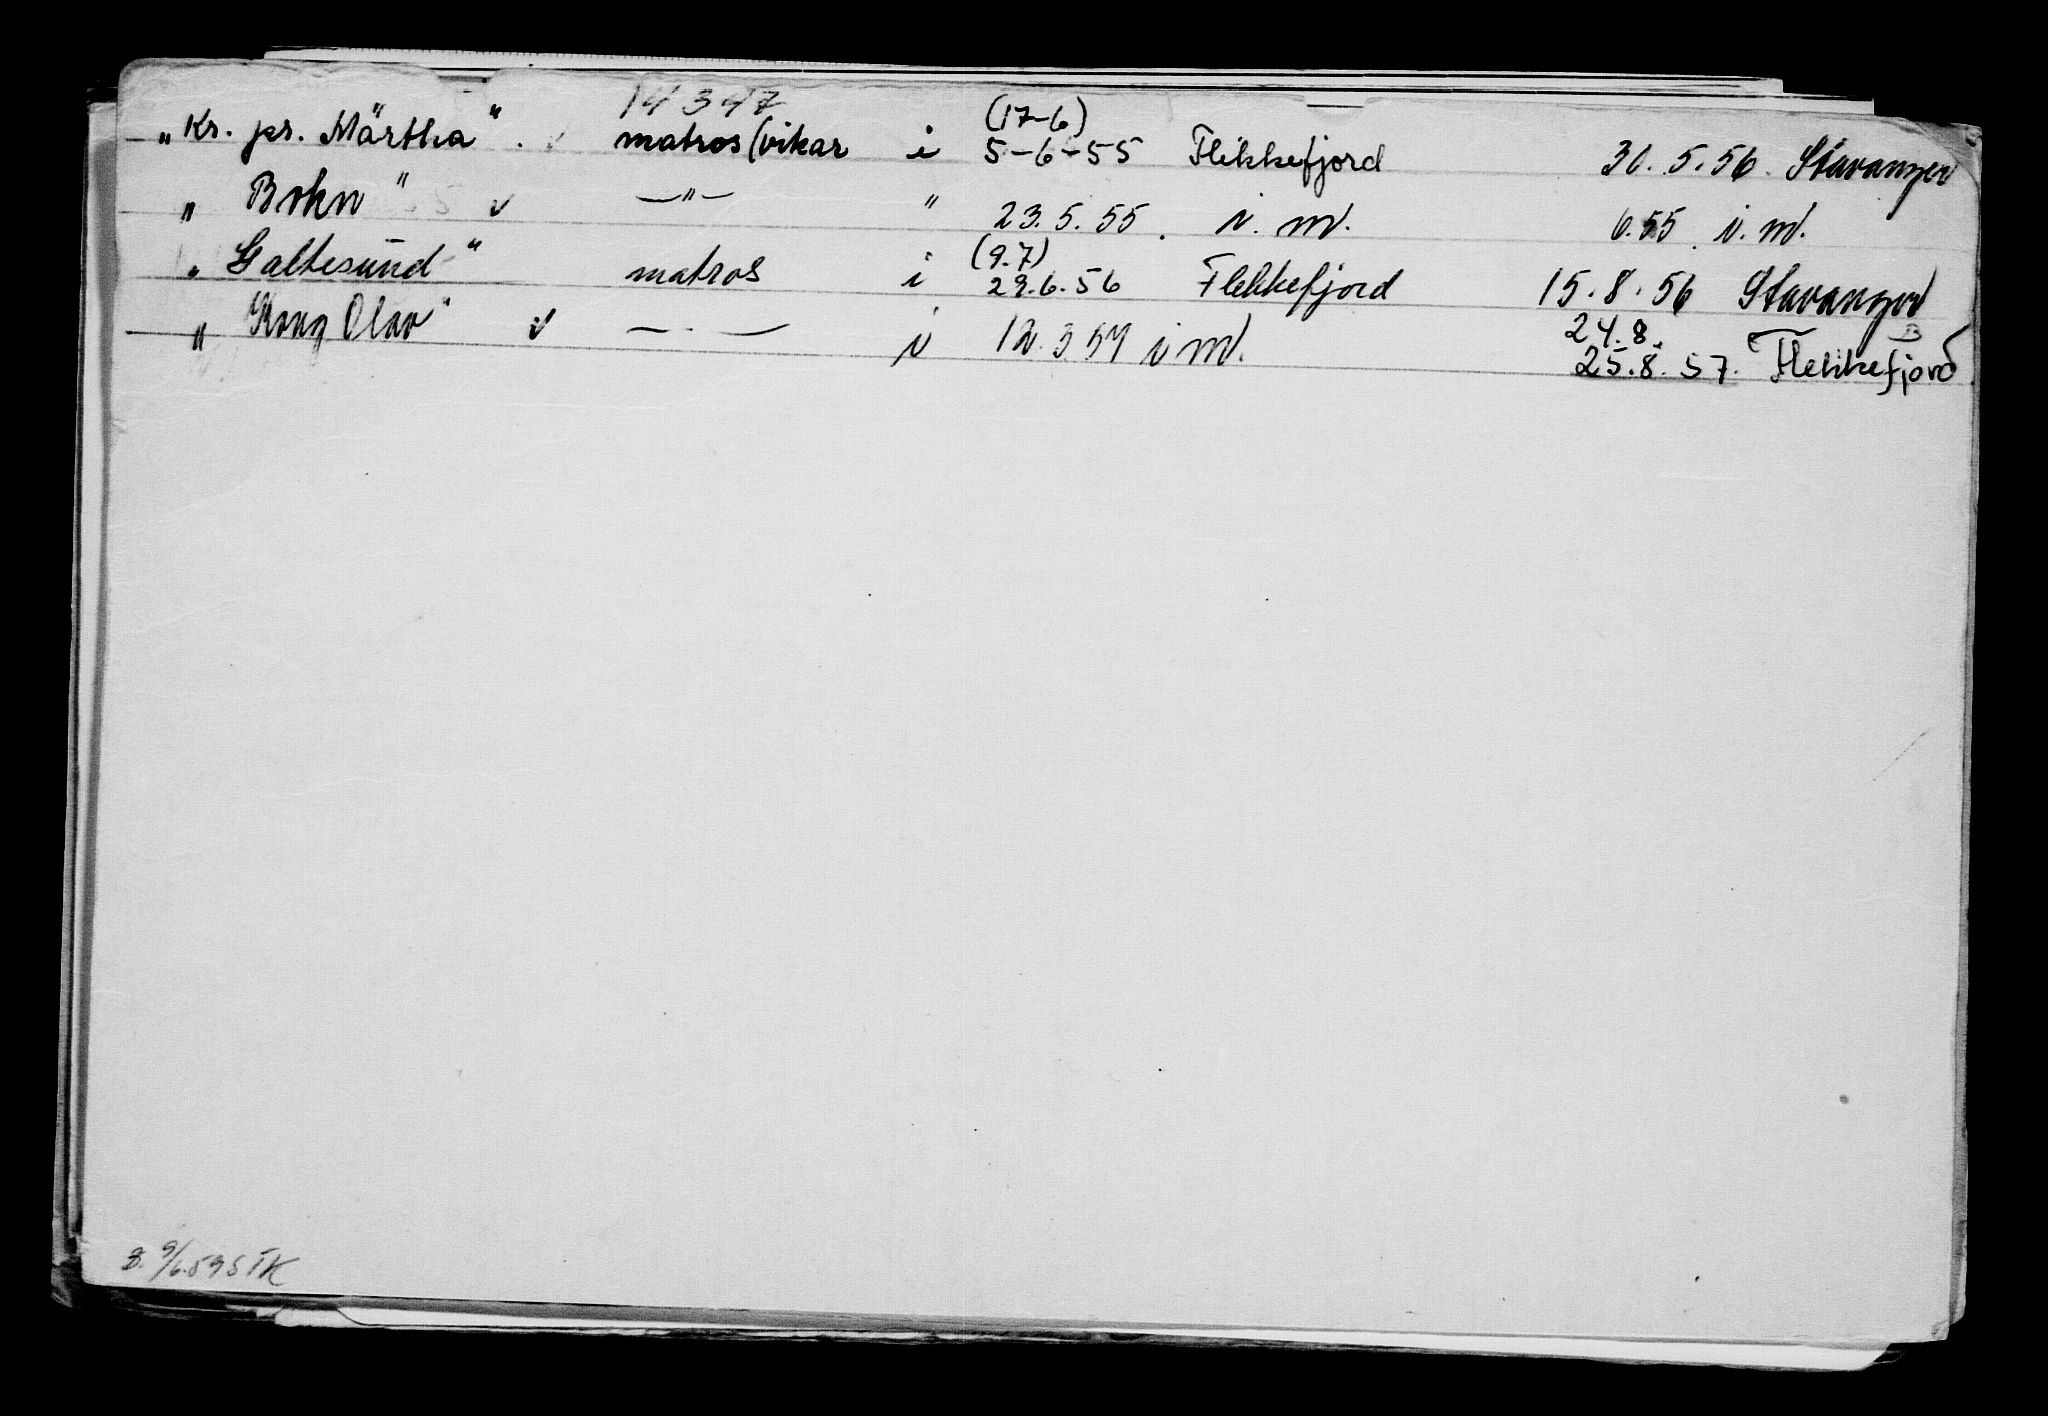 14347
„Kr. pr. Märtha“. v matros (vikar i (17-6) 5-6-55 Flekkefjord 30.5.56. Stavanger
„Bokn“ v —"— " 23.5.55. i. m. 6.55. i. m.
„Galtesund“ matros i (9.7) 29.6.56 Flekkefjord 15.8.56 Stavanger
„Kong Olav“ v — . — i 12.3 57 i m. 24.8. 25.8.57. Flekkefjord